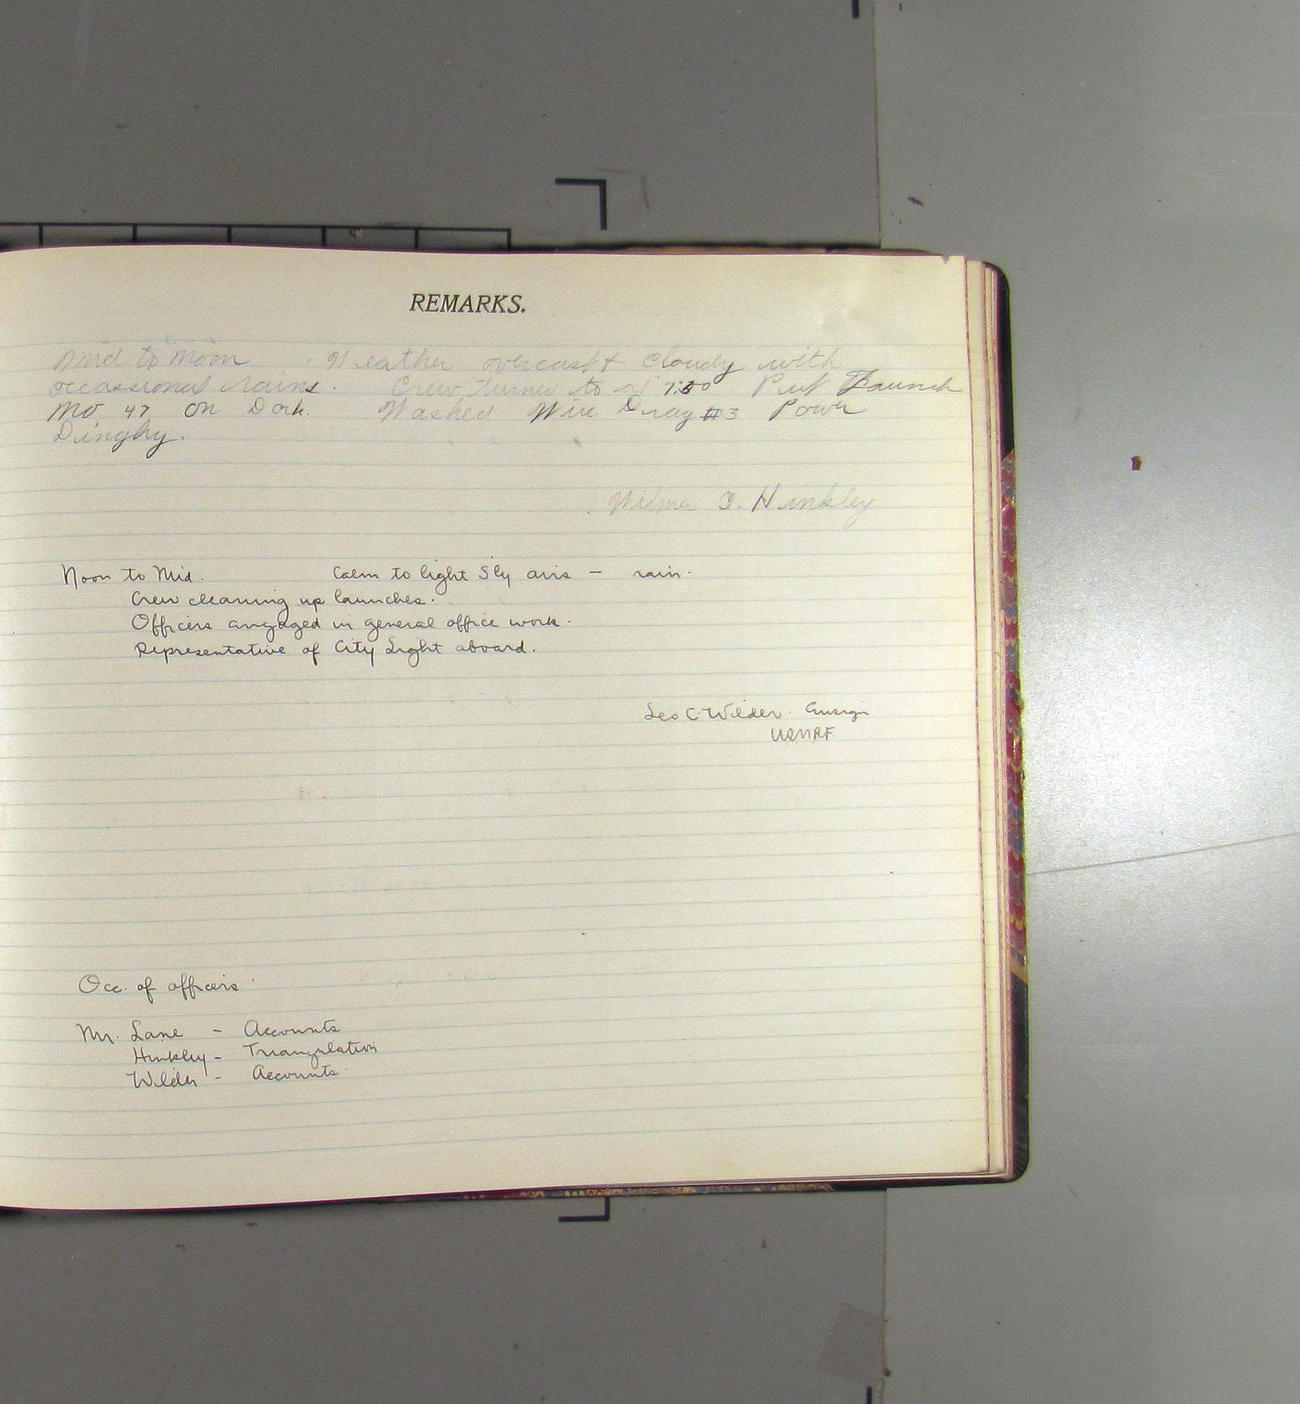 REMARKS.
Mid to Noon Weather overcast & cloudy with
occassional rains. Crew turned to at 7:30 Put Launch
No 47 on Dock. Washed Wire Drag #3 Power
Dinghy.
Hinkley
Noon to Mid. Calm to light S'ly airs – rain.
Crew cleaning up launches.
Officers engaged in general office work.
Representative of City Light aboard.
Leo C. Wilder. Ensign
USNRF
Occ. of officers.
Mr. Lane - Accounts
Hinkley - Triangulation
Wilder - Accounts.